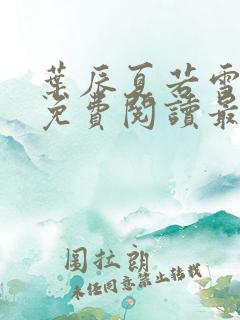 葉辰夏若雪
免費閱讀最
圖拉朗
未经同意禁止转载